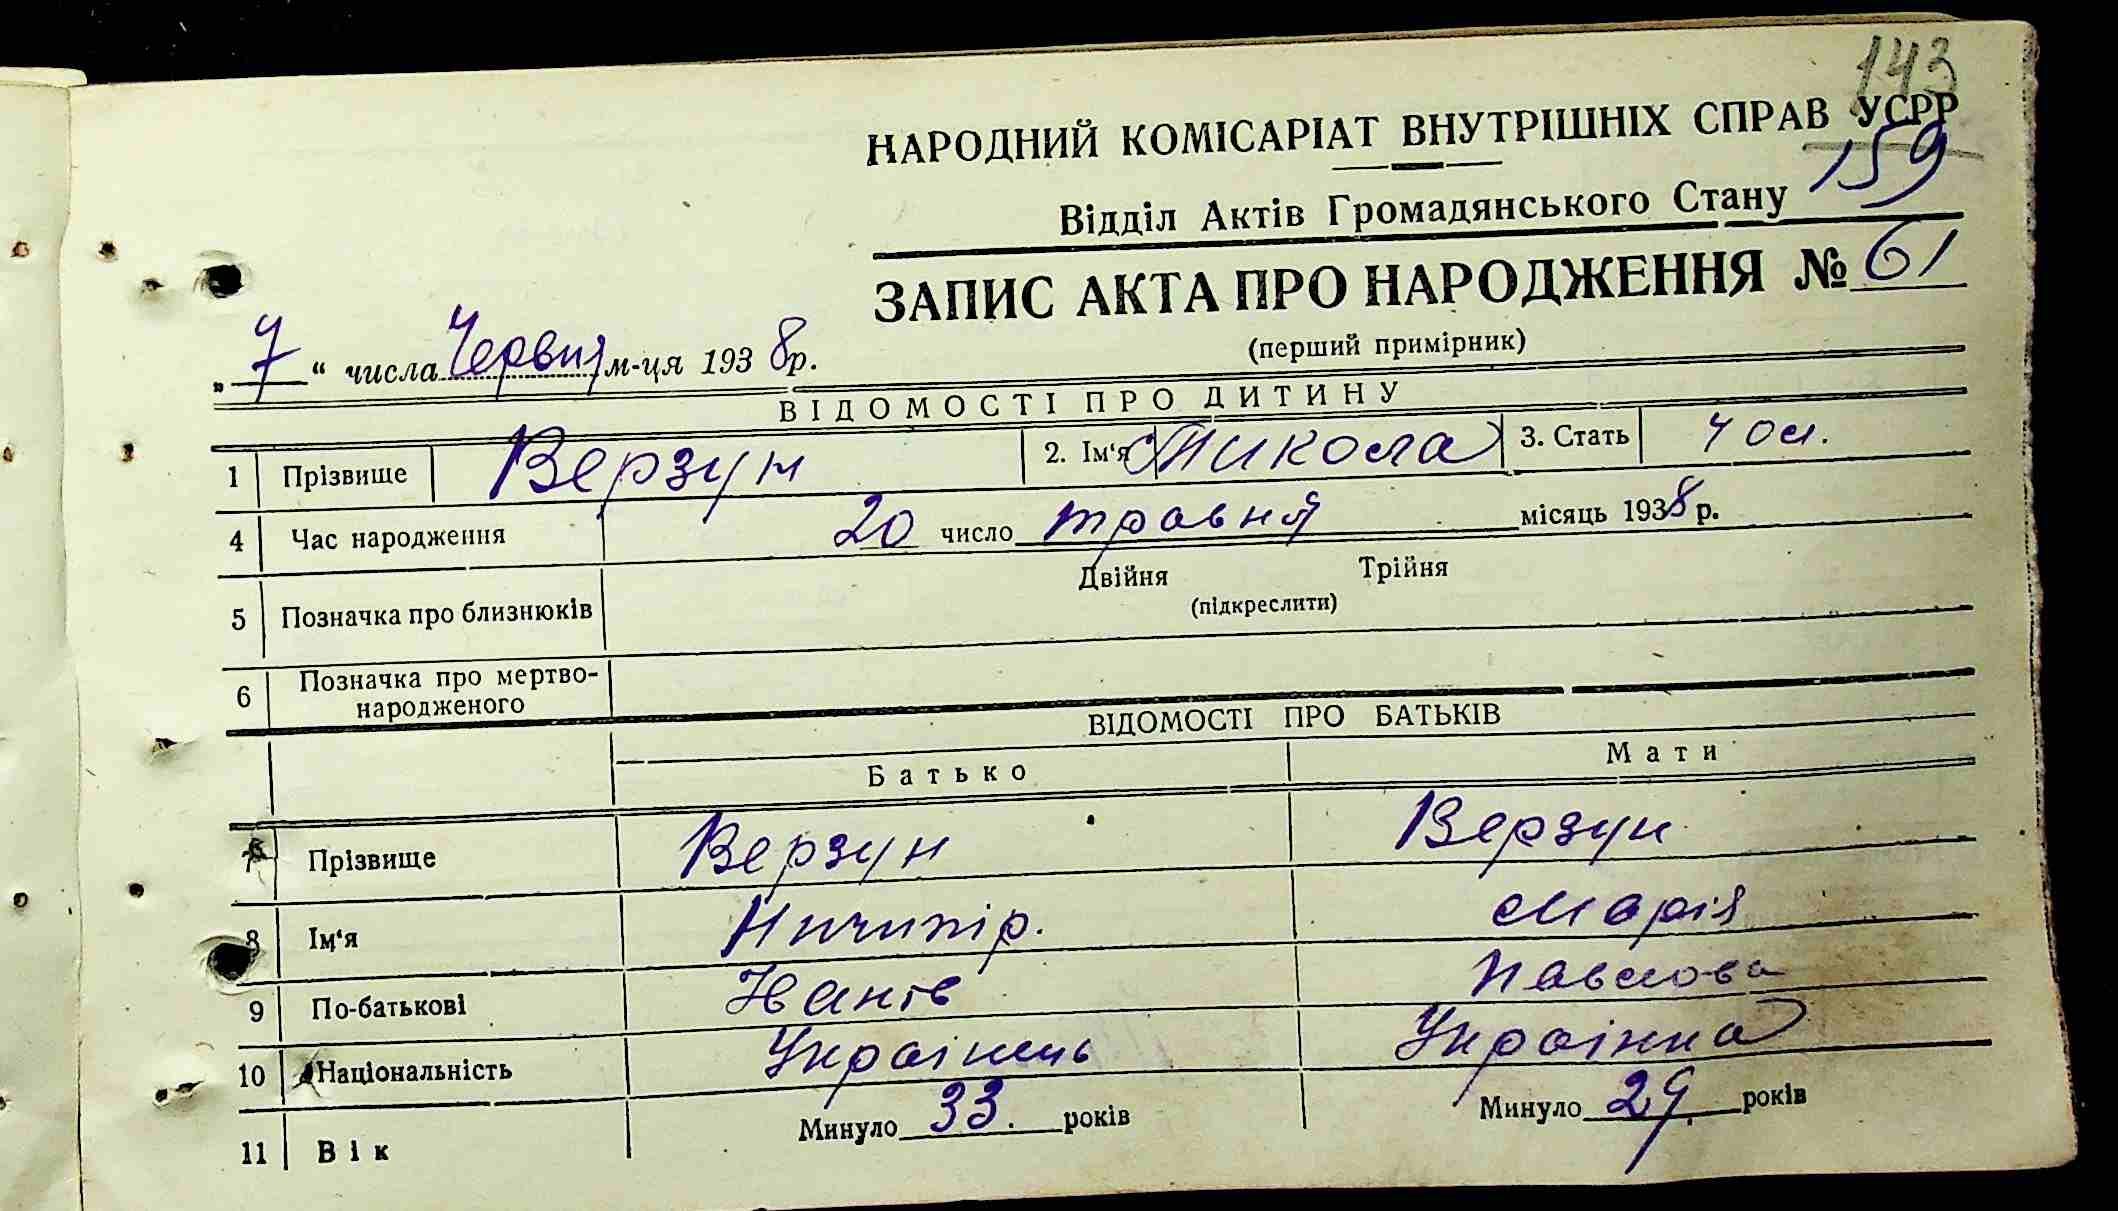 143
НАРОДНИЙ КОМІСАРІАТ ВНУТРІШНІХ СПРАВ УСРР
159
Відділ Актів Громадянського Стану
ЗАПИС АКТА ПРО НАРОДЖЕННЯ № 61
(перший примірник)
„ 7 “ числа Червня м-ця 1938 р.
ВІДОМОСТІ ПРО ДИТИНУ
1 Прізвище Верзун 2. Ім‘я Микола 3. Стать чол.
4 Час народження 20 число травня місяць 1938 р.
5 Позначка про близнюків Двійня Трійня
(підкреслити)
6 Позначка про мертво-
народженого
ВІДОМОСТІ ПРО БАТЬКІВ
Батько Мати
7 Прізвище Верзун Верзун
8 Ім‘я Ничипір. Марія
9 По-батькові Іванів Павлова
10 Національність Українець Українка
11 Вік Минуло 33. років Минуло 29. років